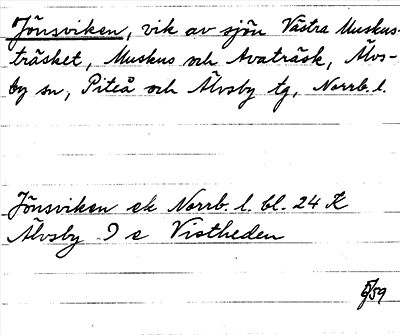 Jönsviken, vik av sjön Västra Muskus-
träsket, Muskus och Avaträsk, Älvs-
by sn, Piteå och Älvsby tg, Norrb. l.
Jönsviken ek Norrb. l. bl. 24 K
Älvsby 9 e Vistheden